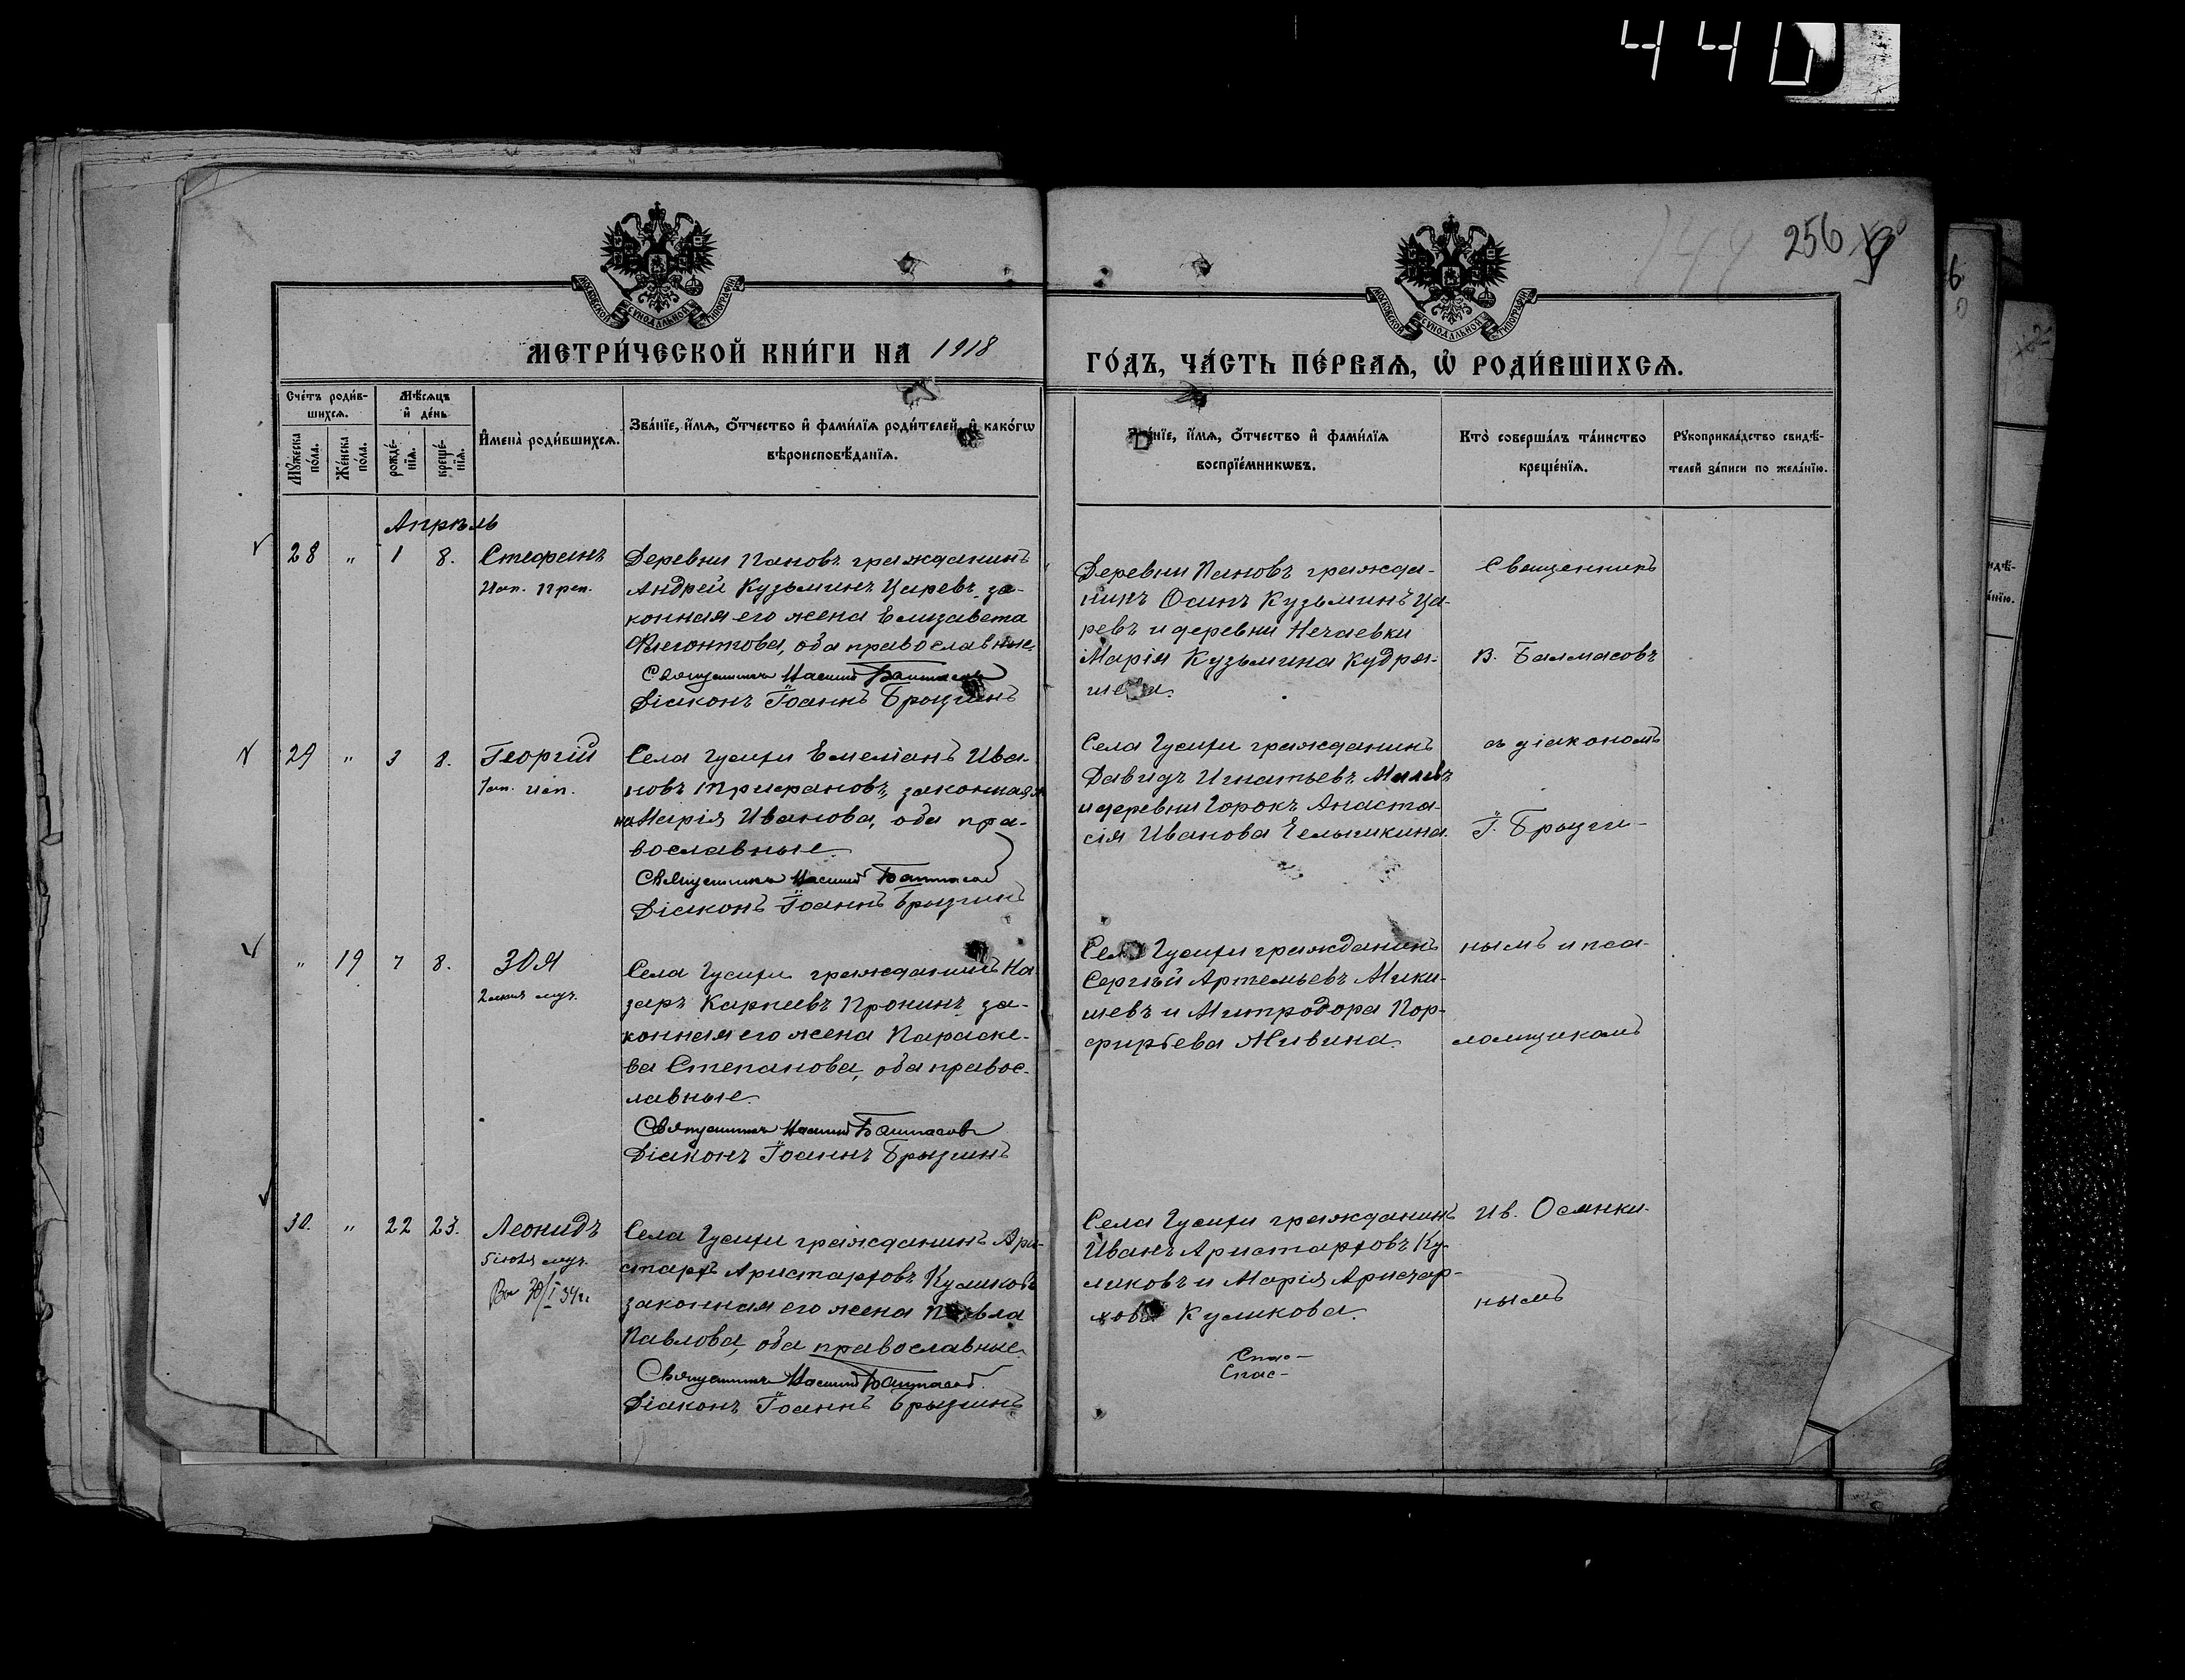 440
256
МОСКОВСКОЙ СѴНОДАЛЬНОЙ ТИПОГРАФІИ
МОСКОВСКОЙ СѴНОДАЛЬНОЙ ТИПОГРАФІИ
МЕТРИ́ЧЕСКОЙ КНИ́ГИ НА 1918
ГО́ДЪ, ЧА́СТЬ ПЕ́РВАѦ, Ѡ҆ РОДИ́ВШИХСѦ.
Сче́тъ роди́в-
шихсѧ.
Мꙋ́жеска по́ла.
Же́нска по́ла.
Мѣ́сѧцъ
и҆ де́нь
рожде́-
нїѧ.
креще́-
нїѧ.
И҆мена̀ роди́вшихсѧ.
Зва́нїе, и҆́мѧ, ѻ҆́тчество и҆ фами́лїѧ роди́телей, и҆ како́гѡ
вѣроисповѣ́данїѧ.
Зва́нїе, и҆́мѧ, ѻ҆́тчество и҆ фами́лїѧ
воспрїе́мникѡвъ.
Кто̀ соверша́лъ та́инство
креще́нїѧ.
Рꙋкоприкла́дство свидѣ́-
телей за́писи по жела́нїю.
Апрѣль
28 " 1 8. Стефанъ
Деревни Пановъ гражданинъ
Андрей Кузьминъ Царевъ, за-
конная его жена Елизавета
Флегонтова, оба православные.
Священникъ Балмасовъ
Діаконъ Іоаннъ Брызгинъ
Деревни Пановъ гражда-
нинъ Осипъ Кузьминъ Ца-
ревъ и деревни Нечаевки
Марія Кузьмина Кудря-
Священникъ
В. Балмасовъ
29 " 3 8. Георгій
Села Гусищи Емеліанъ Ива-
новъ Трифановъ, законная
Марія Иванова, оба пра-
вославные.
Священникъ Балмасовъ
Діаконъ Іоаннъ Брызгинъ
Села Гусищи гражданинъ
Давидъ Игнатьевъ
и деревни Горокъ Анаста-
сія Иванова
съ діакономъ
І. Брызги-
" 19 7 8. Зоя
Села Гусищи гражданинъ На-
заръ Карпеевъ Пронинъ, за-
конная его жена Параске-
ва Степанова, оба правос-
лавные.
Священникъ Балмасовъ
Діаконъ Іоаннъ Брызгинъ
Села Гусищи гражданинъ
Сергѣй Артемьевъ Мики-
шевъ и Митродора Пор-
фирьева Живина.
нымъ и пса-
ломщикомъ
30. " 22 23. Леонидъ
Села Гусищи гражданинъ Ари-
стархъ Аристарховъ Куликовъ
законная его жена Павла
Павлова, оба православные.
Священникъ Балмасовъ
Діаконъ Іоаннъ Брызгинъ
Села Гусищи гражданинъ
Иванъ Аристарховъ Ку-
ликовъ и Марія Аристар-
хова Куликова.
Спас-
Спас-
Ив. Осянки-
нымъ